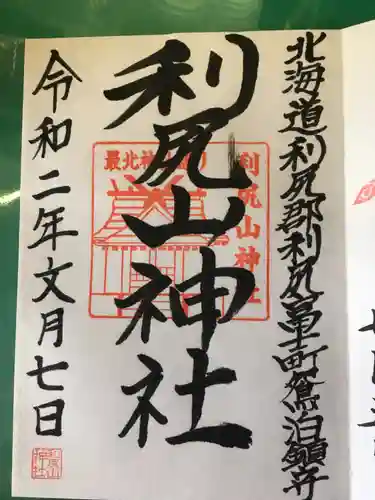 北海道利尻郡利尻富士町鴛泊鎮座
利尻山神社
令和二年文月七日
利尻山神社